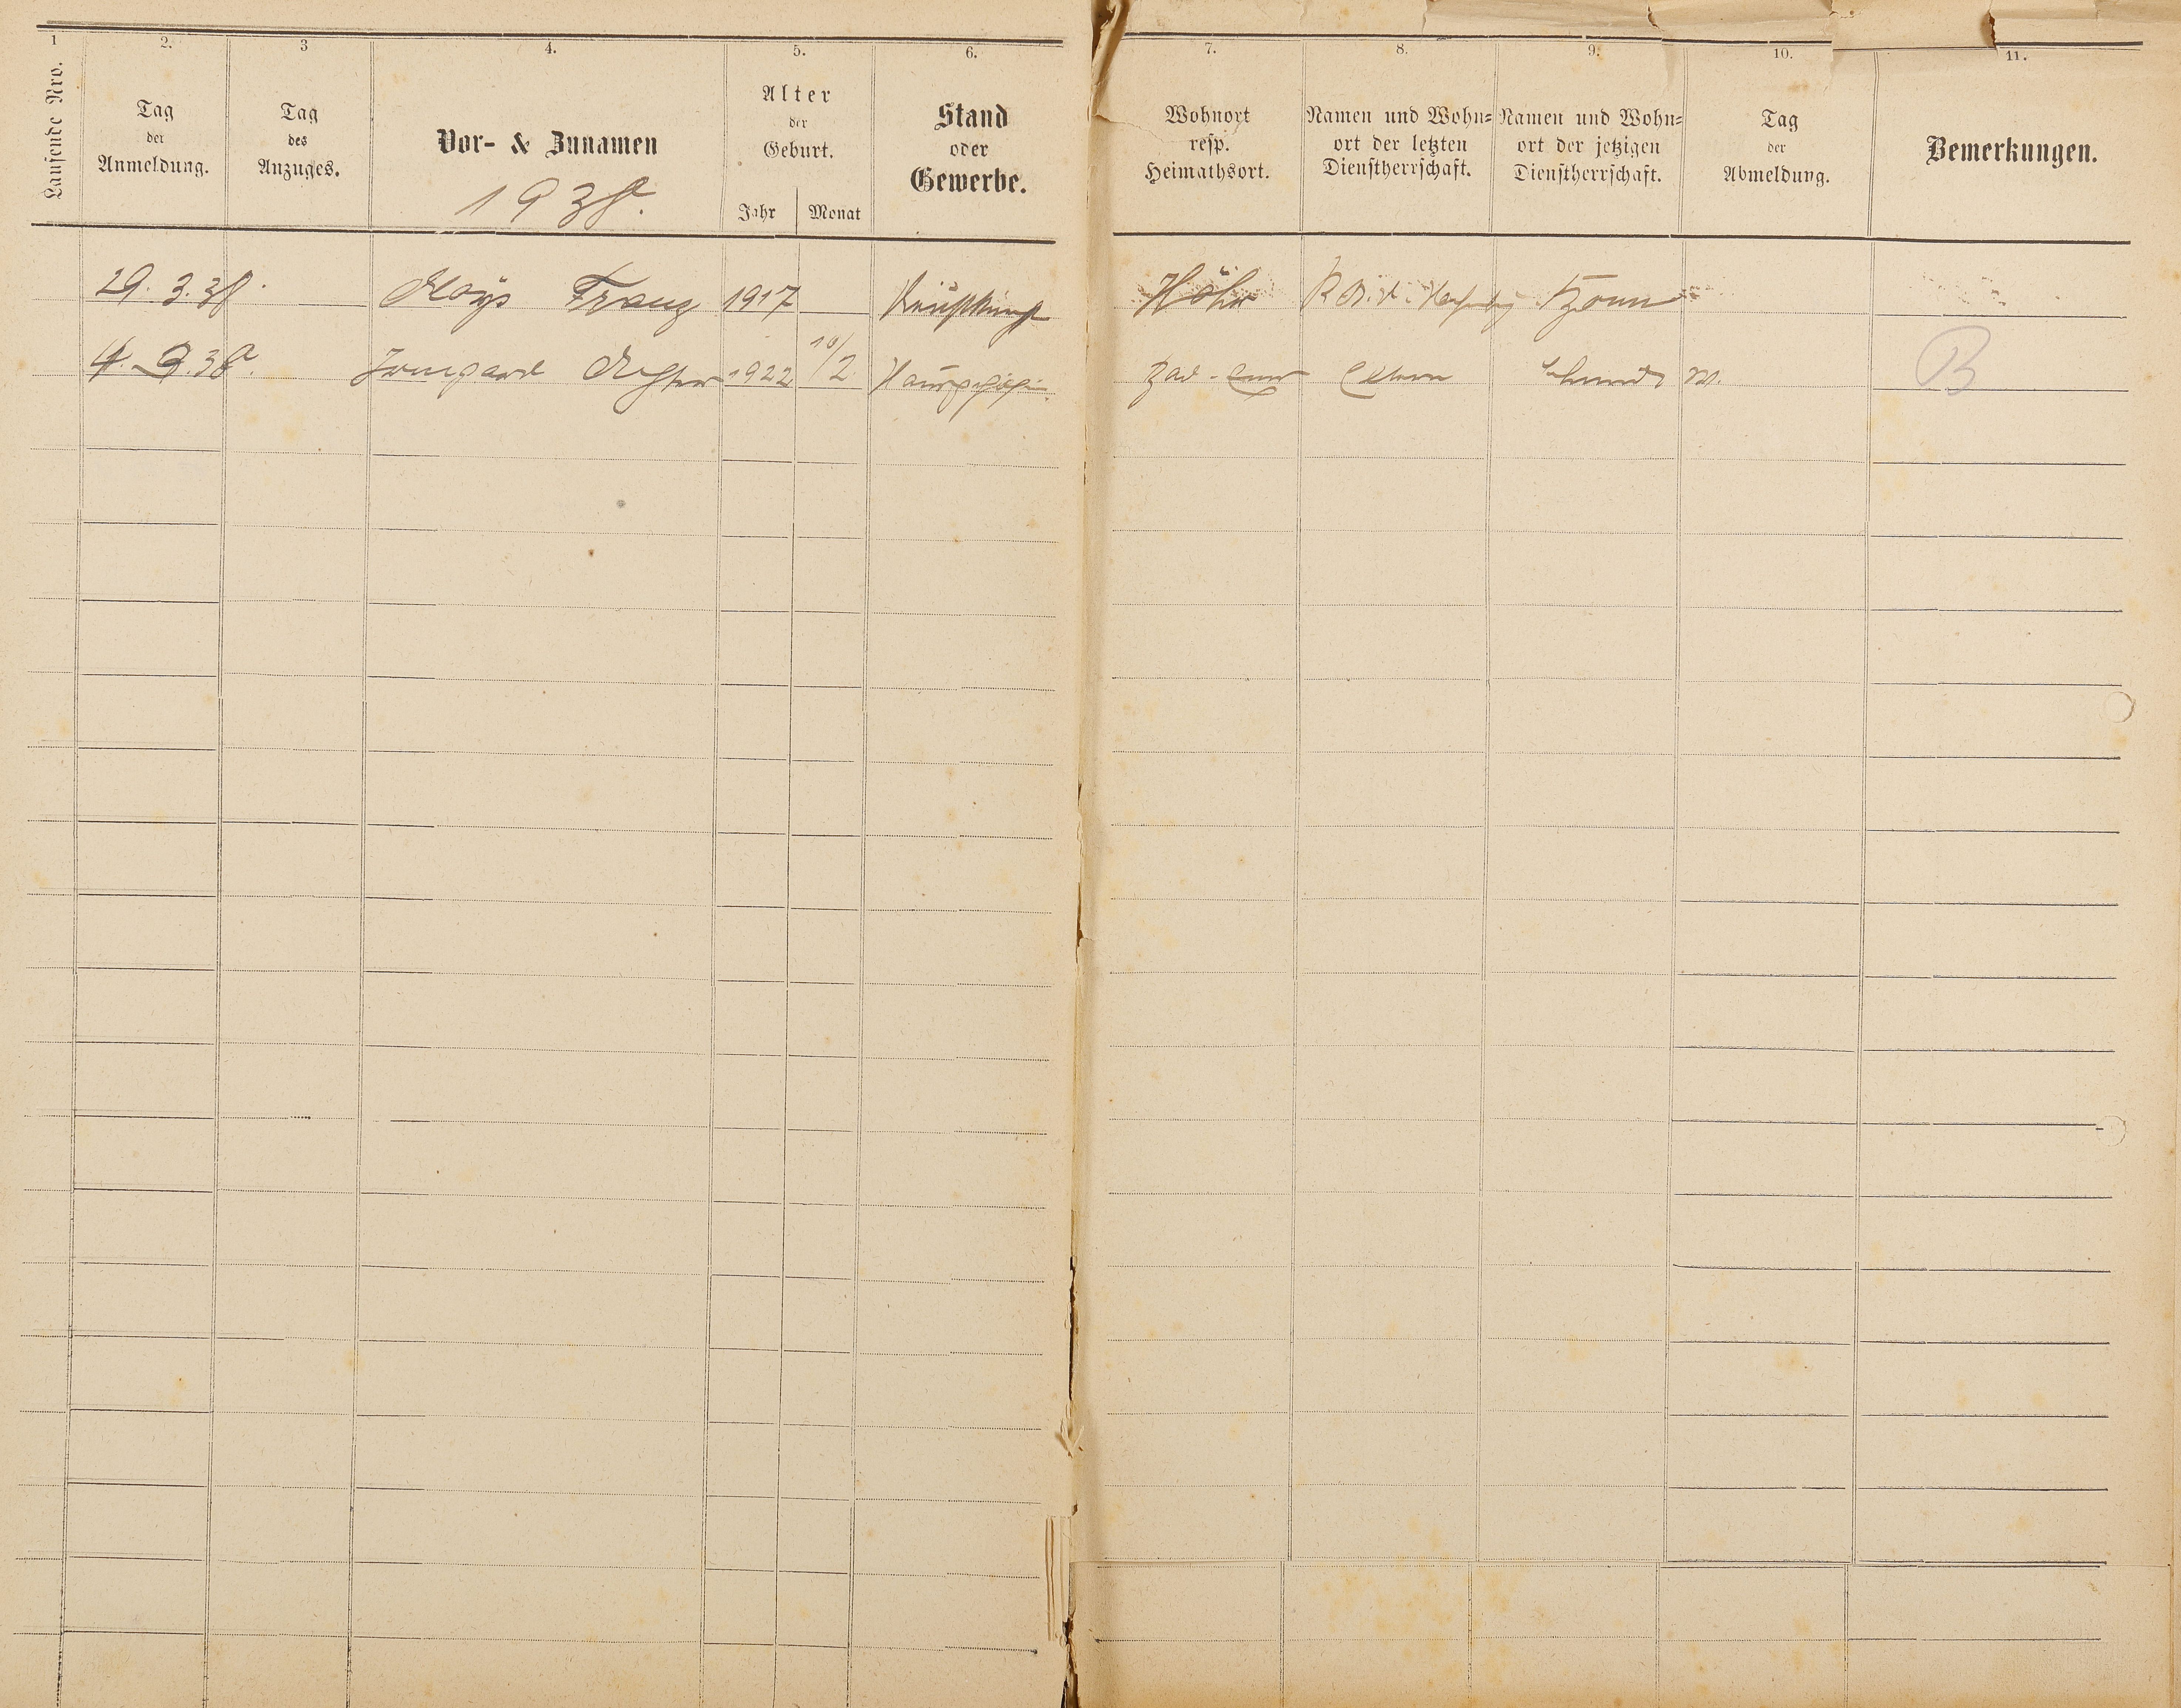 1 2. 3 4. 5. 6. 7. 8. 9. 10. 11.
Laufende Nro.
Tag
der
Anmeldung.
Tag
des
Anzuges.
Vor- & Zunamen
1938.
Alter
der
Geburt.
Jahr Monat
Stand
oder
Gewerbe.
Wohnort
resp.
Heimathsort.
Namen und Wohn=
ort der letzten
Dienstherrschaft.
Namen und Wohn=
ort der jetzigen
Dienstherrschaft.
Tag
der
Abmeldung.
Bemerkungen.
29. 3. 38. Aloys Franz 1917 Höhr
4. 3. 38. Irmgard 1922 10/2 Bad-Ems Eltern Schmidt W. B